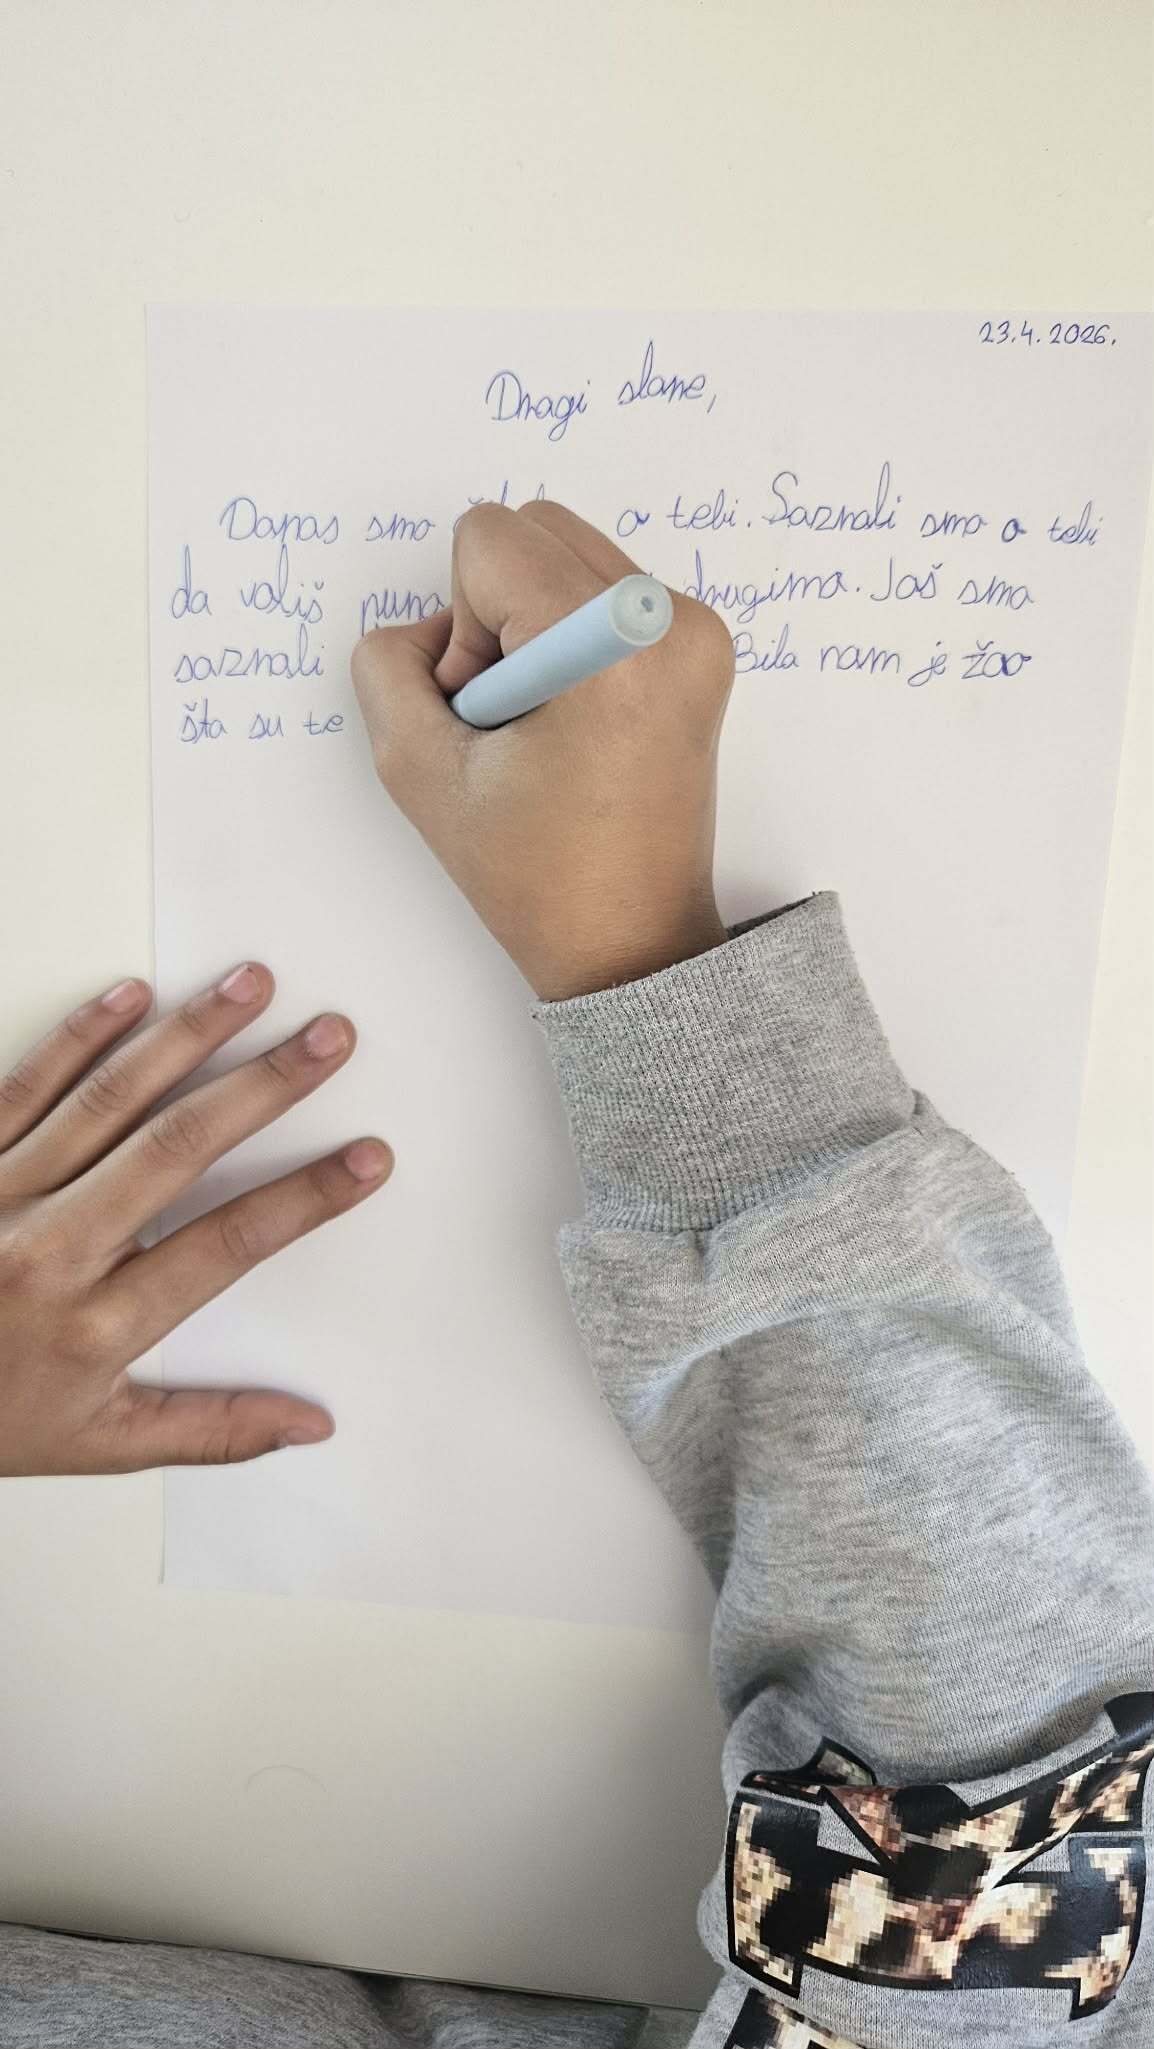 23.4.2026.
Dragi slone,
Danas smo o tebi. Saznali smo o tebi
da voliš puno drugima. Još smo
saznali Bila nam je žao
šta su te